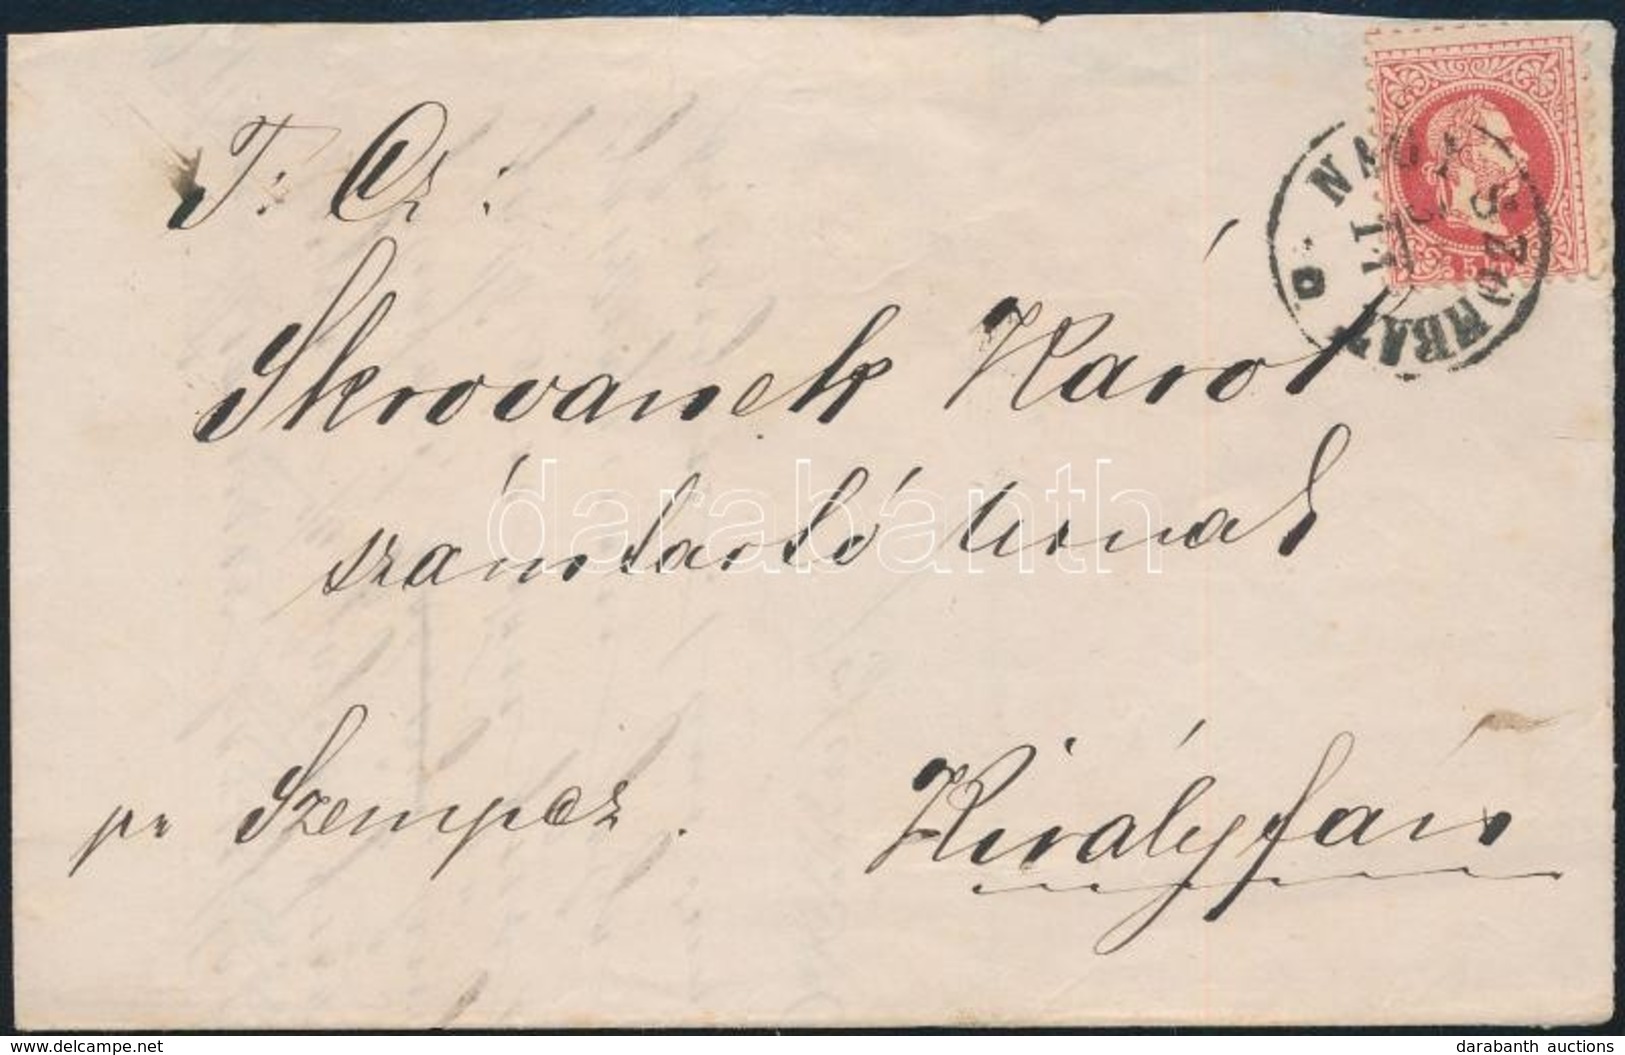 T: Cz:
Skrovanek Károl
számtartó Urnak
pr Szempcz.
Királyfán
NAGY SZOMBAT
darabanth
delcampe.net
darabanth auctions